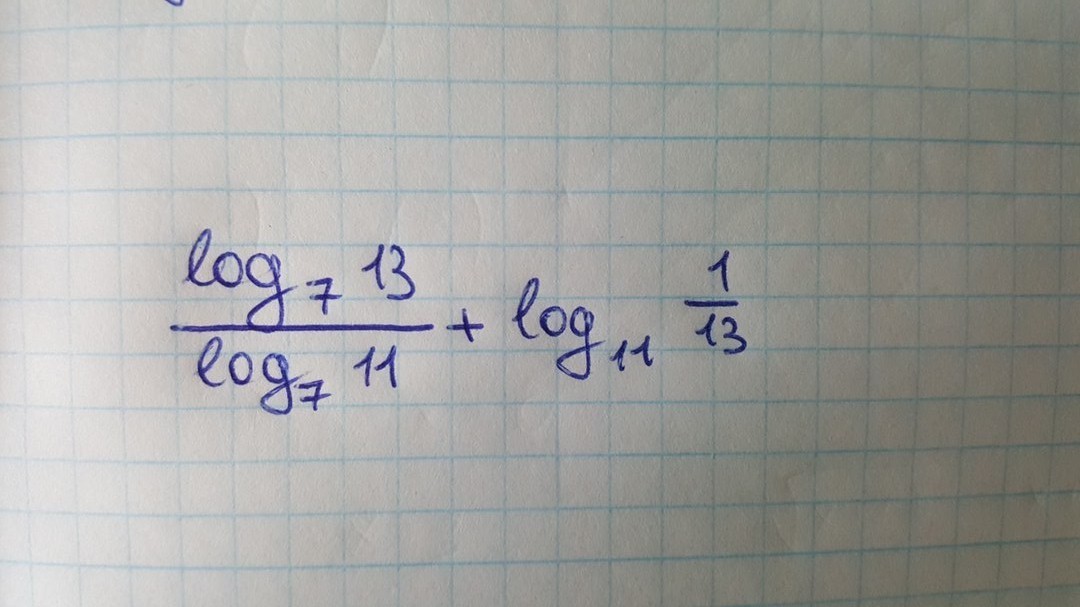 \frac{\log_7 13}{\log_7 11} + \log_{11} \frac{1}{13}